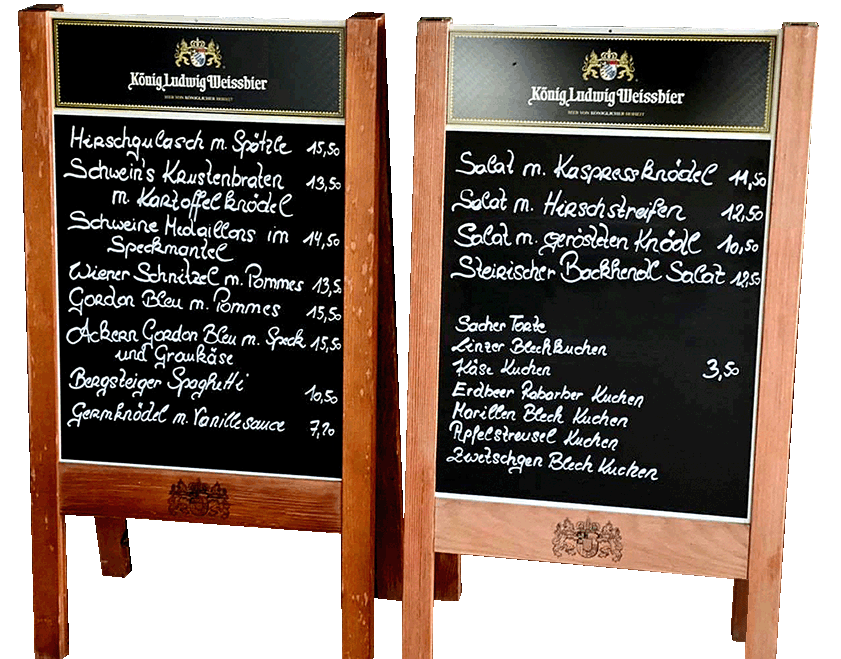 König Ludwig Weissbier
BIER VON KÖNIGLICHER HOHEIT
Hirschgulasch m. Spätzle 15,50
Schwein's Krustenbraten 13,50
m. Kartoffelknödel
Schweine Medaillons im 14,50
Speckmantel
Wiener Schnitzel m. Pommes 13,5
Gordon Bleu m. Pommes 15,50
Ackern Gordon Bleu m. Speck 15,50
und Graukäse
Bergsteiger Spaghetti 10,50
Germknödel m. Vanillesauce 7,20
König Ludwig Weissbier
BIER VON KÖNIGLICHER HOHEIT
Salat m. Kaspressknödel 11,50
Salat m. Hirschstreifen 12,50
Salat m. gerösteten Knödl 10,50
Steirischer Backhendl Salat 12,50
Sacher Torte
Linzer Blechkuchen
Käse Kuchen 3,50
Erdbeer Rabarber Kuchen
Marillen Blech Kuchen
Apfelstreusel Kuchen
Zwetschgen Blech Kuchen